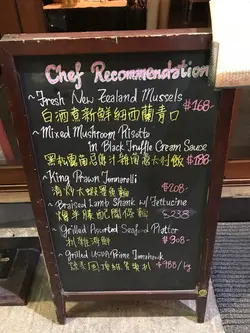 Chef Recommendation
~ Fresh New Zealand Mussels
白酒煮新鮮細西蘭青口 $168-
~ Mixed Mushroom Risotto
in Black Truffle Cream Sauce
黑松露菌忌廉汁雜菌意大利飯 $188
~ King Prawn Tonnarelli
清炒大蝦 $208-
~ Braised Lamb Shank w/ Fettucine
燴羊膝配闊條麵 $238
~ Grilled Assorted Seafood Platter
扒雜海鮮 $308-
~ Grilled USDA Prime Tomahawk
$988/kg